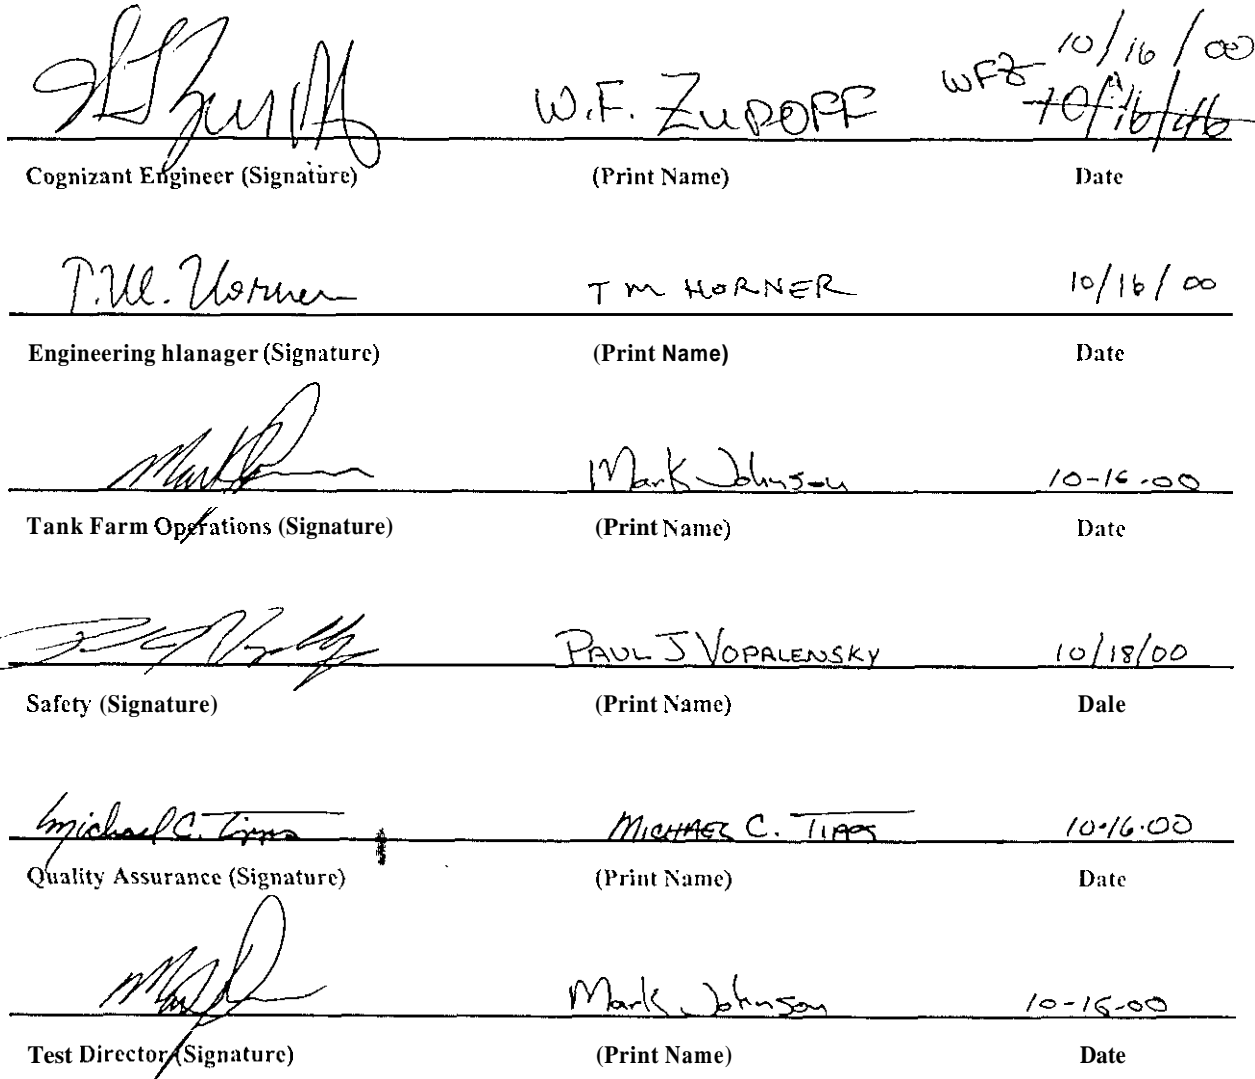 10/16/00
W.F. ZUPOFF WFZ 10/16/16
Cognizant Engineer (Signature) (Print Name) Date
T.M. Horner T M HORNER 10/16/00
Engineering hlanager (Signature) (Print Name) Date
Mark Johnson 10-16-00
Tank Farm Operations (Signature) (Print Name) Date
PAUL J VOPALENSKY 10/18/00
Safety (Signature) (Print Name) Dale
Michael C. Tipps MICHAEL C. TIPPS 10·16·00
Quality Assurance (Signature) (Print Name) Date
Mark Johnson 10-16-00
Test Director (Signature) (Print Name) Date